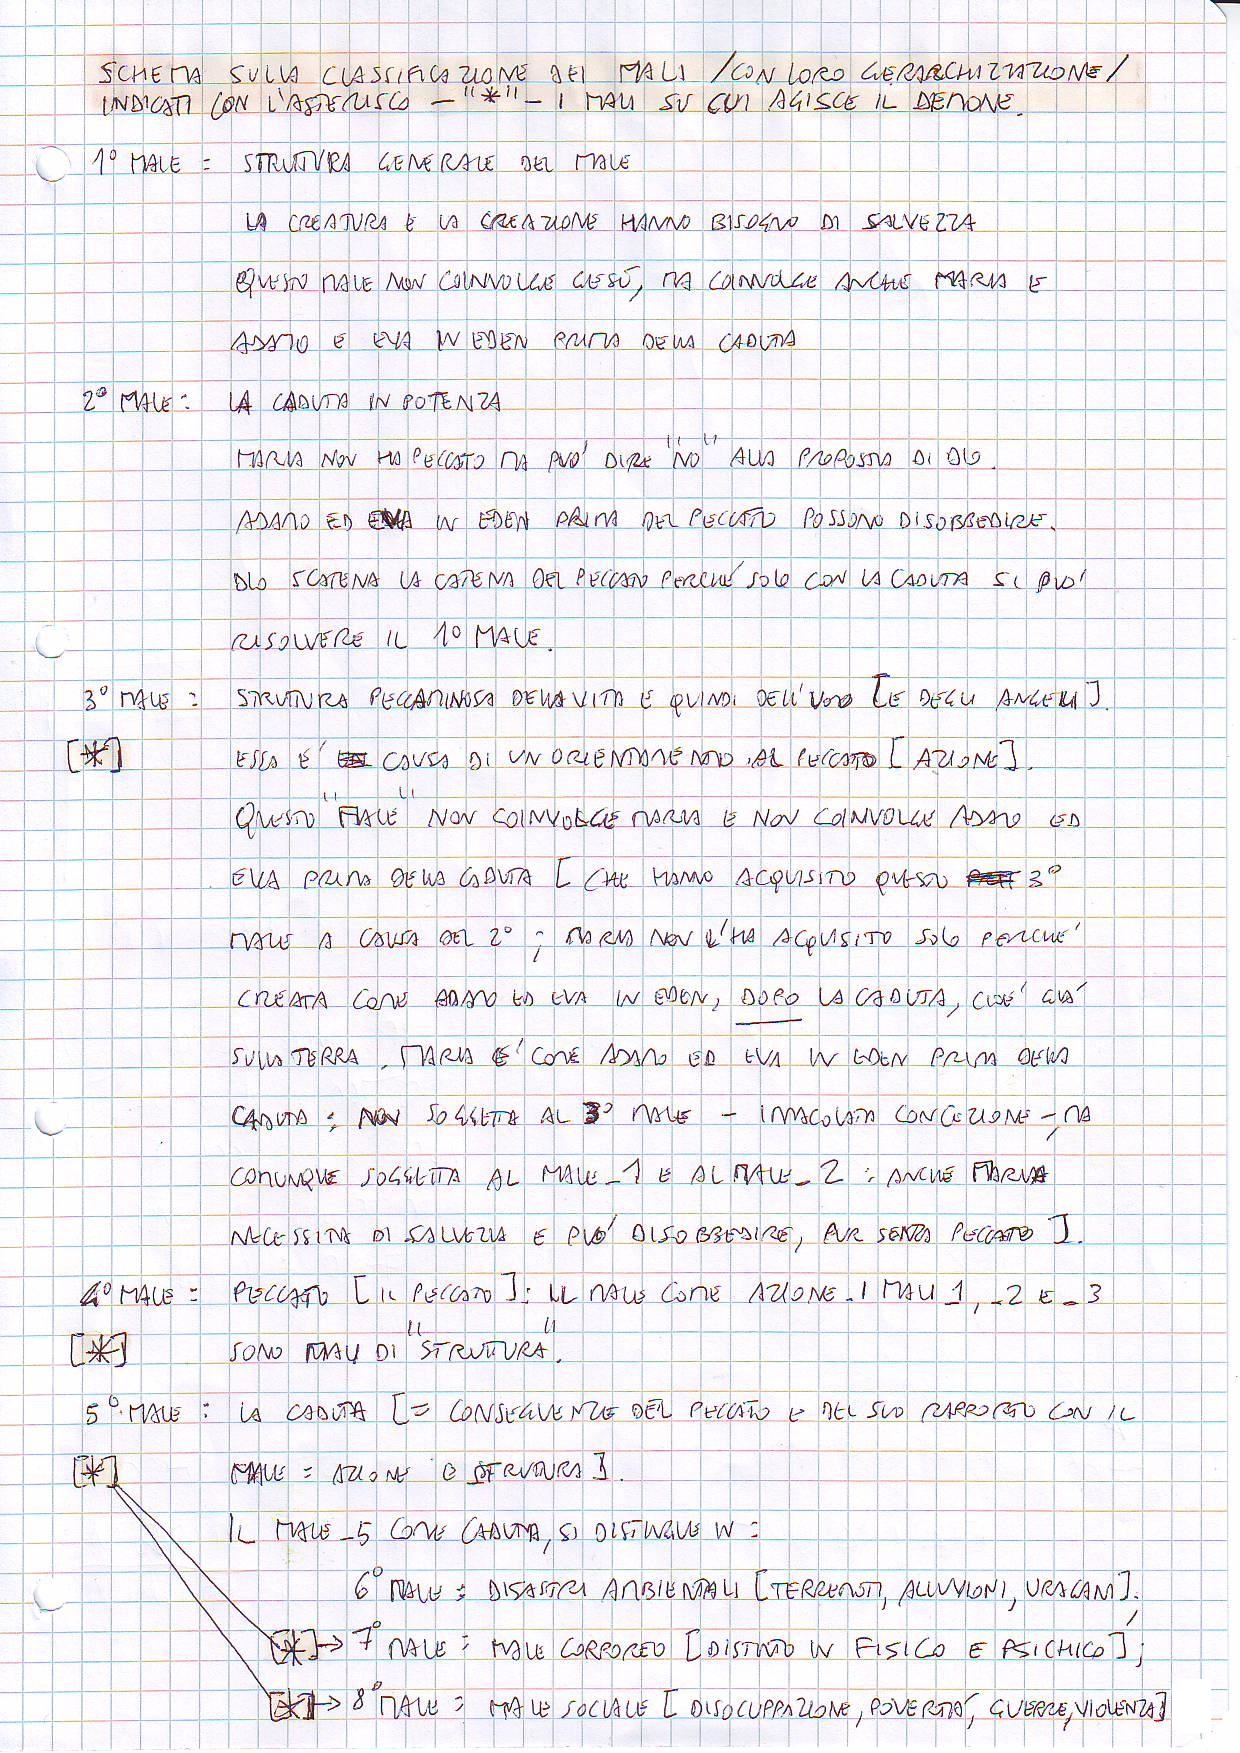 SCHEMA SULLA CLASSIFICAZIONE DEI MALI /CON LORO GERARCHIZZAZIONE/
INDICATI CON L'ASTERISCO - "*" - I MALI SU CUI AGISCE IL DEMONE.
1° MALE = STRUTTURA GENERALE DEL MALE
LA CREATURA E LA CREAZIONE HANNO BISOGNO DI SALVEZZA
QUESTO MALE NON COINVOLGE GESÙ, MA COINVOLGE ANCHE MARIA E
ADAMO E EVA IN EDEN PRIMA DELLA CADUTA
2° MALE = LA CADUTA IN POTENZA
MARIA NON HA PECCATO MA PUO' DIRE "NO" ALLA PROPOSTA DI DIO.
ADAMO ED EVA IN EDEN PRIMA DEL PECCATO POSSONO DISOBBEDIRE.
DIO SCATENA LA CATENA DEL PECCATO PERCHE' SOLO CON LA CADUTA SI PUO'
RISOLVERE IL 1° MALE.
3° MALE = STRUTTURA PECCAMINOSA DELLA VITA E QUINDI DELL'UOMO [E DEGLI ANGELI].
[*] ESSA E' CAUSA DI UN ORIENTAMENTO AL PECCATO [AZIONE].
QUESTO "MALE" NON COINVOLGE MARIA E NON COINVOLGE ADAMO ED
EVA PRIMA DELLA CADUTA [CHE HANNO ACQUISITO QUESTO 3°
MALE A CAUSA DEL 2° ; MARIA NON L'HA ACQUISITO SOLO PERCHE'
CREATA COME ADAMO ED EVA IN EDEN, DOPO LA CADUTA, CIOE' GIA'
SULLA TERRA. MARIA E' COME ADAMO ED EVA IN EDEN PRIMA DELLA
CADUTA : NON SOGGETTA AL 3° MALE - IMMACOLATA CONCEZIONE -, MA
COMUNQUE SOGGETTA AL MALE_1 E AL MALE_2 : ANCHE MARIA
NECESSITA DI SALVEZZA E PUO' DISOBBEDIRE, PUR SENZA PECCATO].
4° MALE = PECCATO [IL PECCATO] : IL MALE COME AZIONE. I MALI_1, _2 E _3
[*] SONO MALI DI "STRUTTURA".
5° MALE : LA CADUTA [= CONSEGUENZE DEL PECCATO E DEL SUO RAPPORTO CON IL
[*] MALE = AZIONE E STRUTTURA].
IL MALE_5 COME CADUTA, SI DISTINGUE IN =
6° MALE = DISASTRI AMBIENTALI [TERREMOTI, ALLUVIONI, URAGANI];
[*] → 7° MALE = MALE CORPOREO [DISTINTO IN FISICO E PSICHICO];
[*] → 8° MALE = MALE SOCIALE [DISOCCUPAZIONE, POVERTA', GUERRE, VIOLENZA]